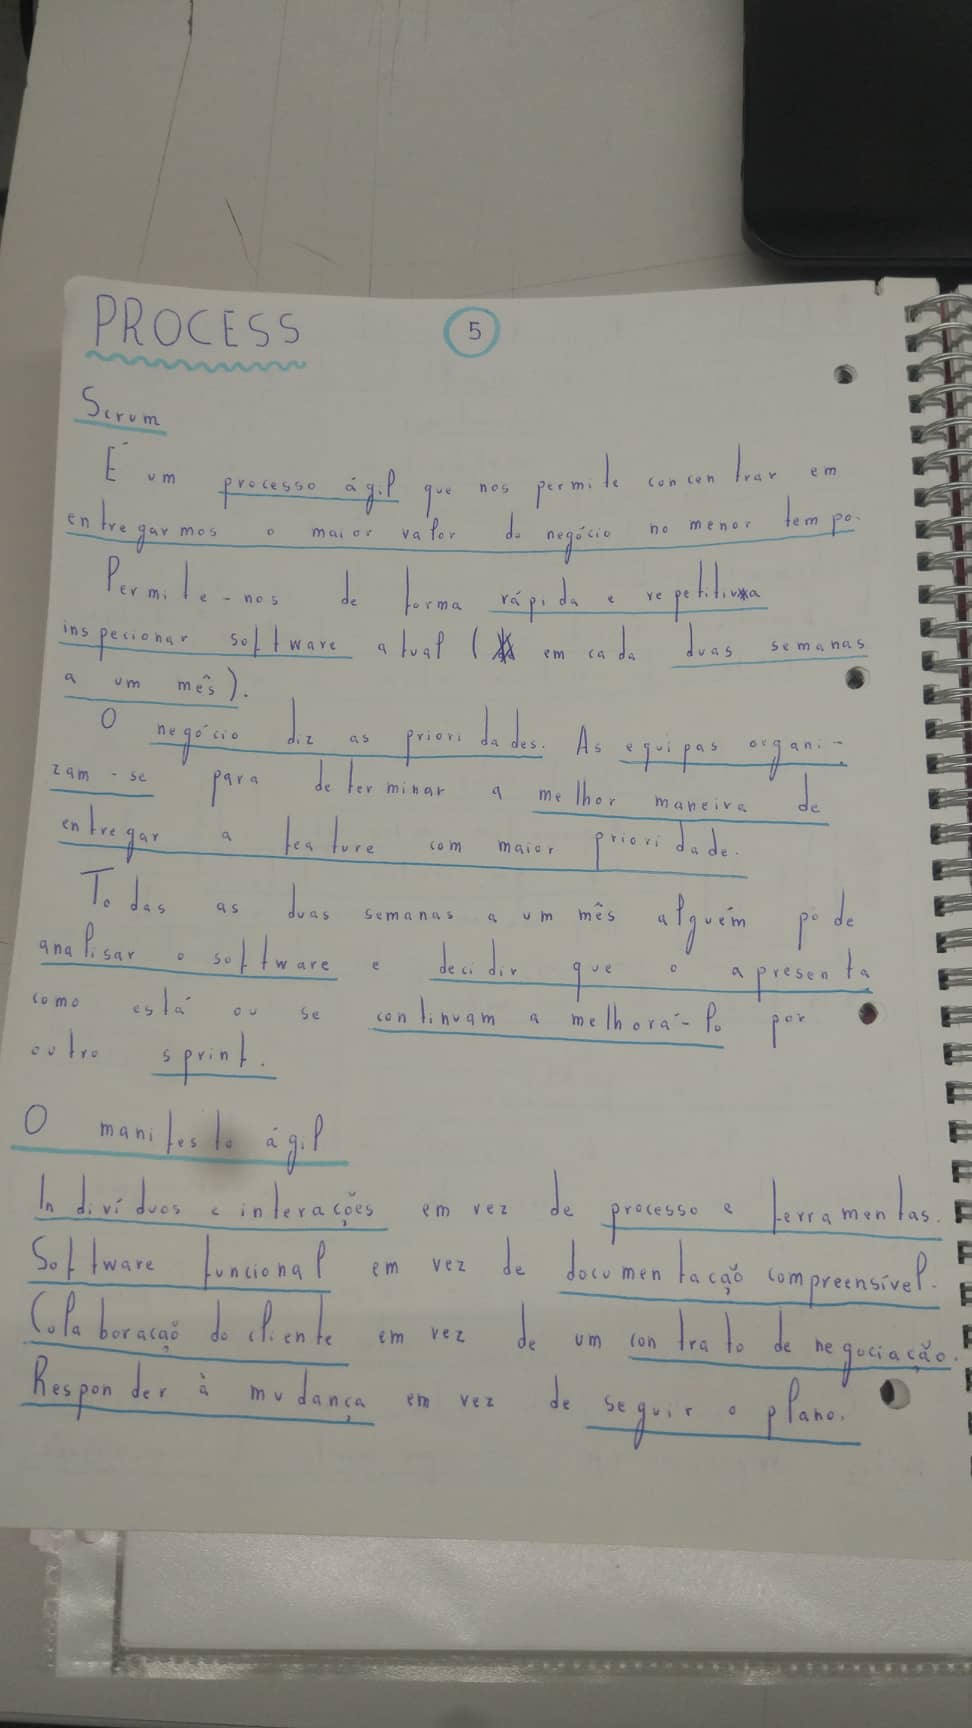 PROCESS 5
Scrum
É um processo ágil que nos permite concentrar em
entregarmos o maior valor do negócio no menor tempo.
Permite-nos de forma rápida e repetitiva
inspecionar software atual ( em cada duas semanas
a um mês).
O negócio diz as prioridades. As equipas organi-
zam-se para determinar a melhor maneira de
entregar a feature com maior prioridade.
Todas as duas semanas a um mês alguém pode
analisar o software e decidir que o apresenta
como está ou se continuam a melhorá-lo por
outro sprint.
O manifesto ágil
Indivíduos e interações em vez de processo e ferramentas.
Software funcional em vez de documentação compreensível.
Colaboração do cliente em vez de um contrato de negociação.
Responder à mudança em vez de seguir o plano.